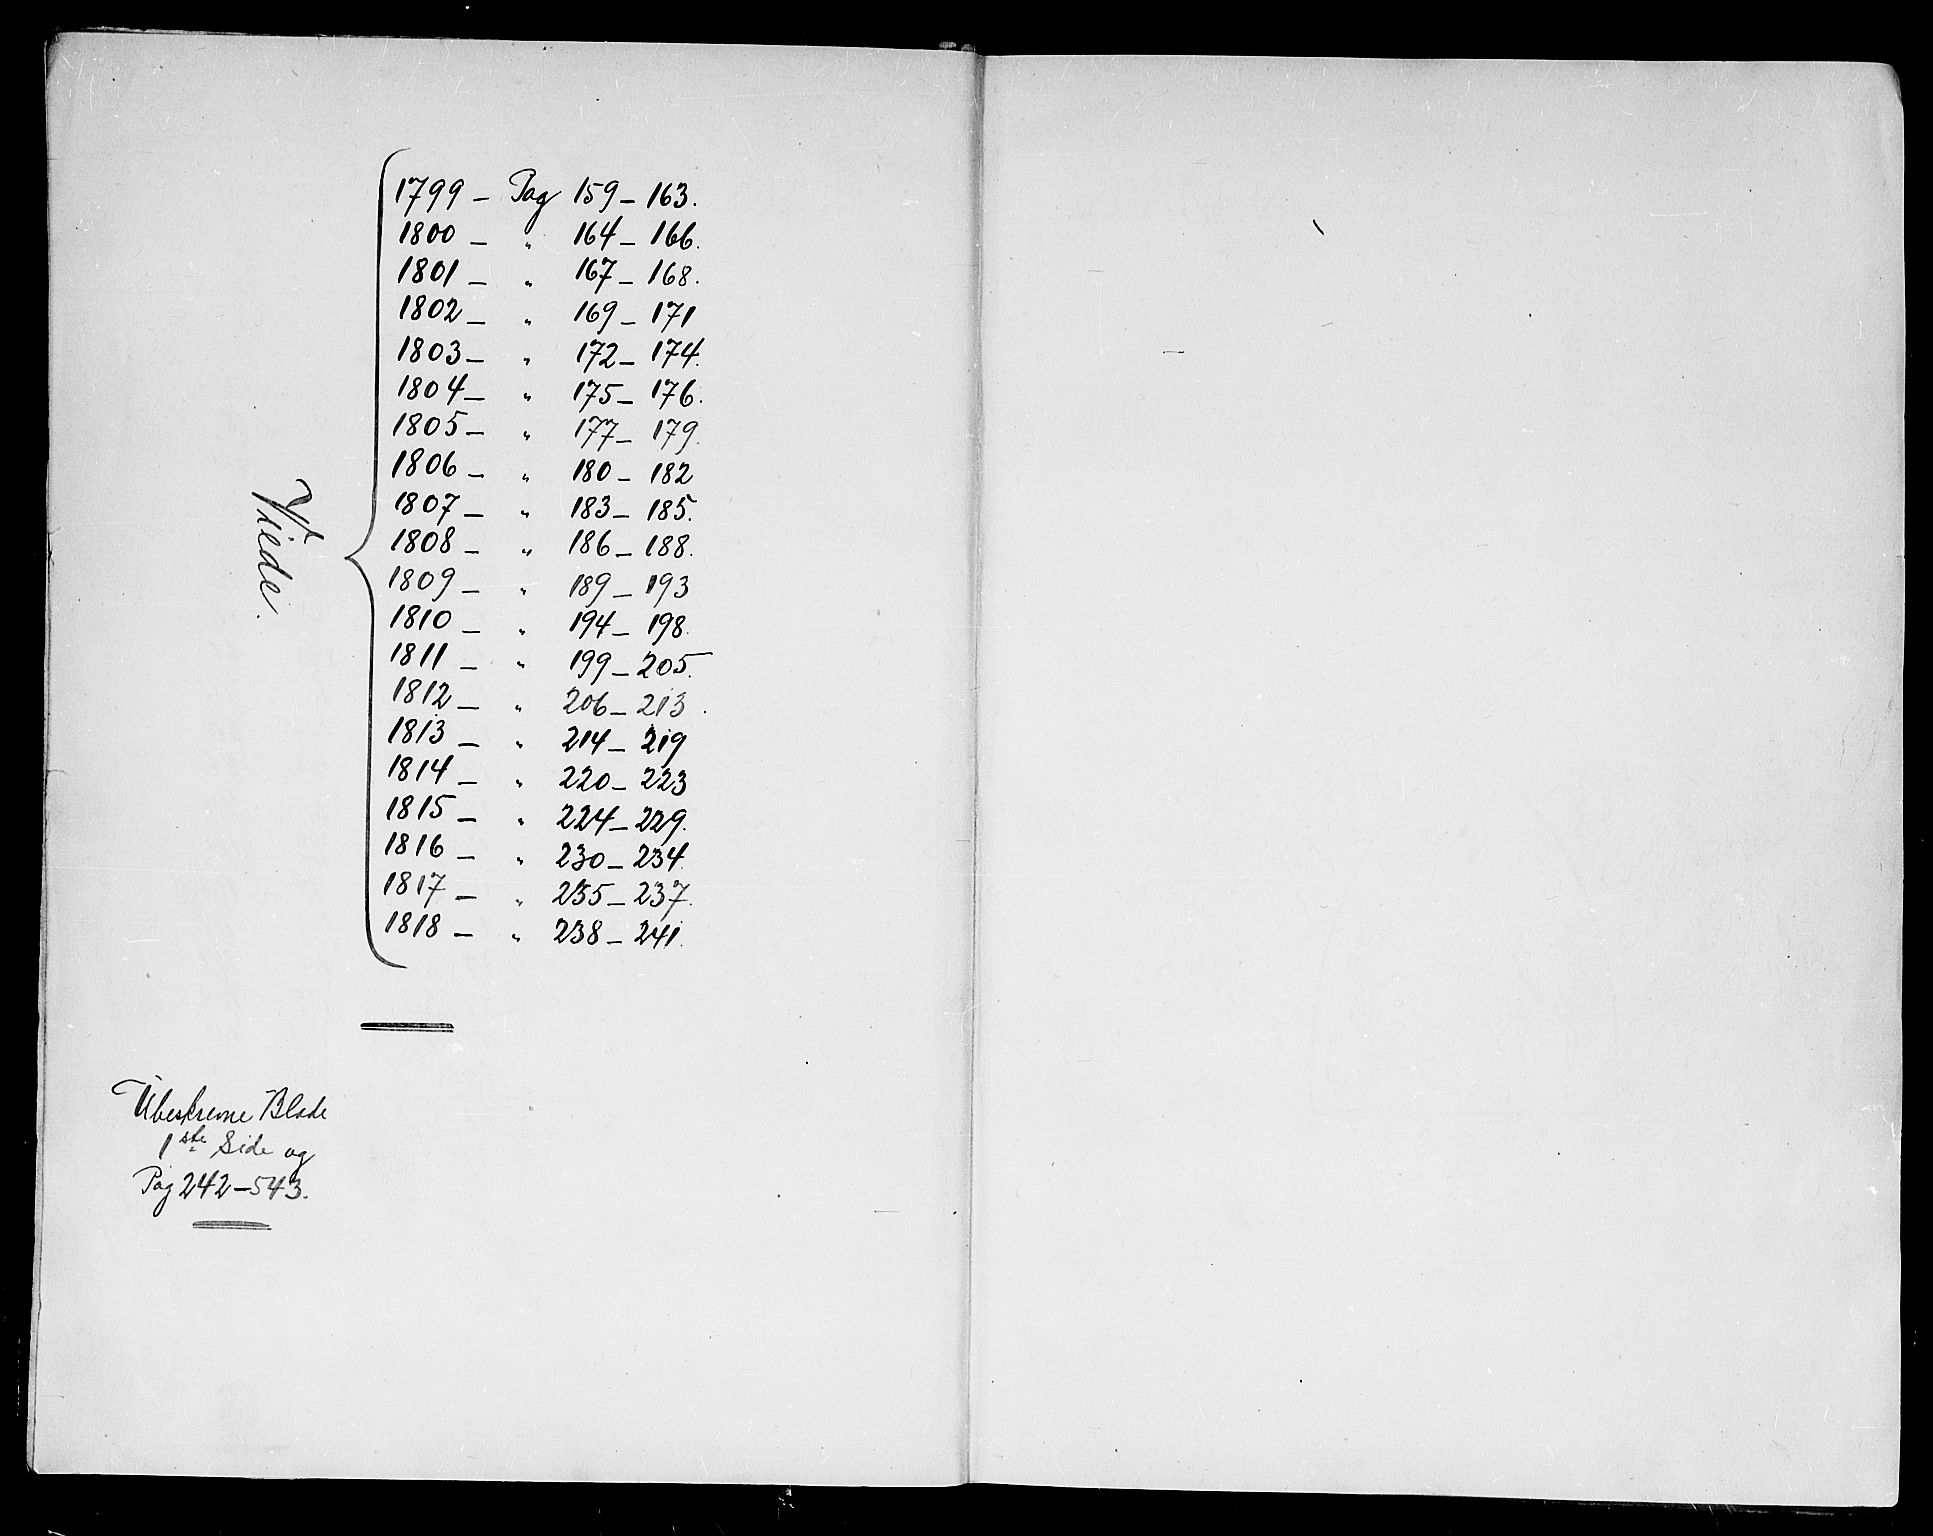 Viede.
1799 – Pag 159 – 163.
1800 – " 164 – 166.
1801 – " 167 – 168.
1802 – " 169 – 171
1803 – " 172 – 174.
1804 – " 175 – 176.
1805 – " 177 – 179.
1806 – " 180 – 182
1807 – " 183 – 185.
1808 – " 186 – 188.
1809 – " 189 – 193
1810 – " 194 – 198.
1811 – " 199 – 205.
1812 – " 206 – 213.
1813 – " 214 – 219
1814 – " 220 – 223
1815 – " 224 – 229.
1816 – " 230 – 234.
1817 – " 235 – 237.
1818 – " 238 – 241.
Ubeskrevne Blade
1ste Side og
Pag 242 – 543.